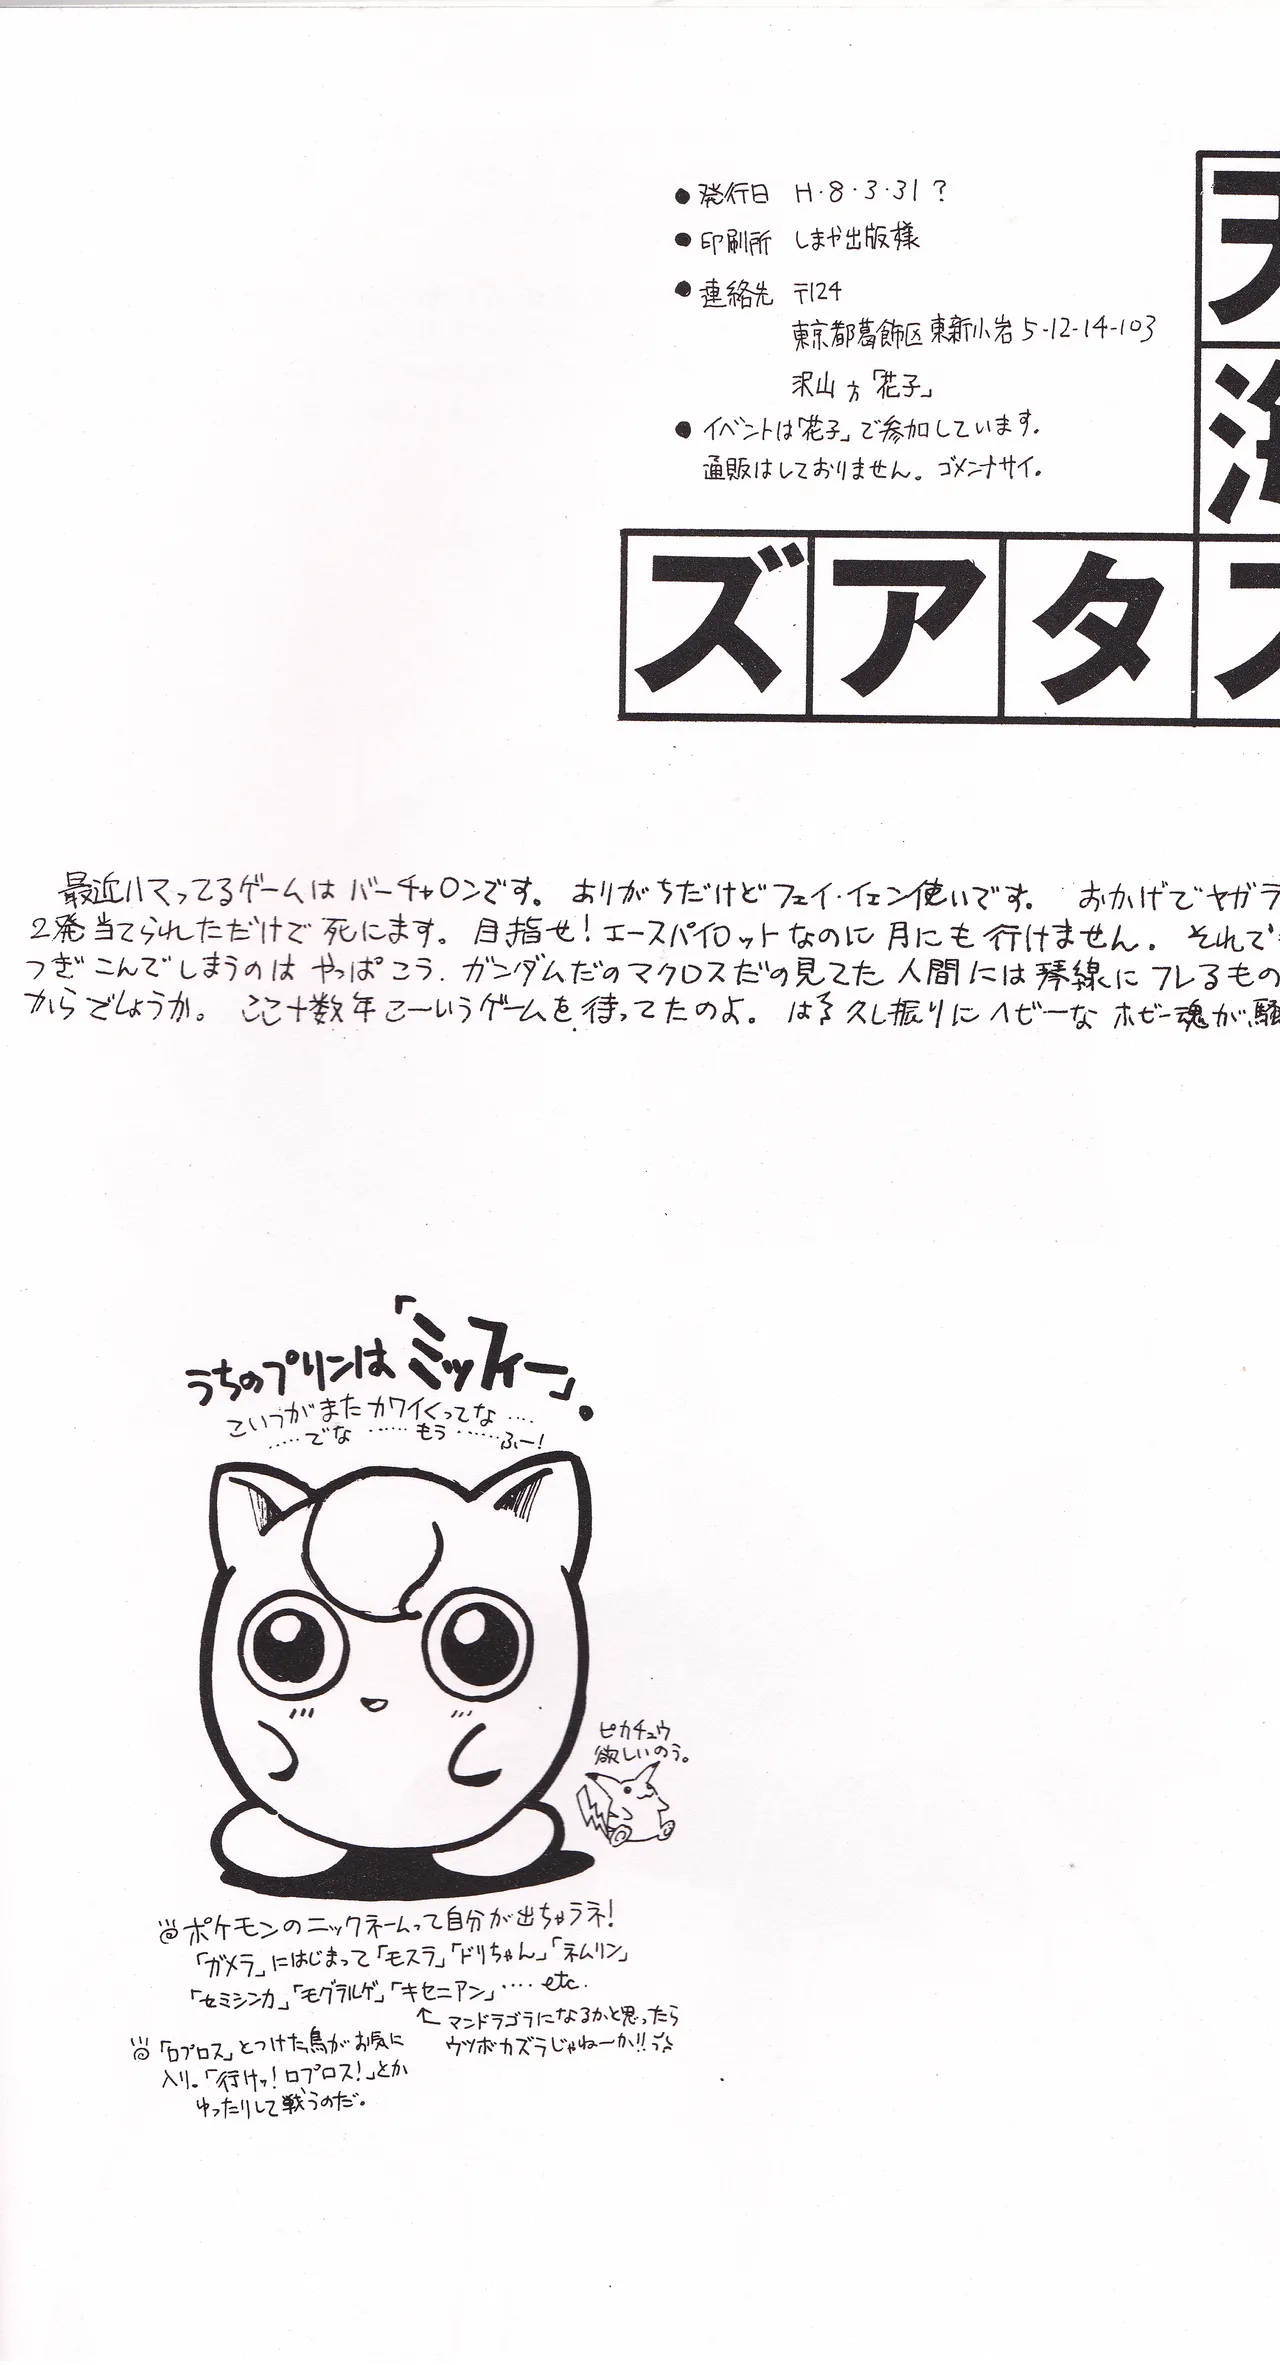 ●発行日 H・8・3・31?
●印刷所 しまや出版様
●連絡先 〒124
東京都葛飾区東新小岩5-12-14-103
沢山方「花子」
●イベントは「花子」で参加しています。
通販はしておりません。ゴメンナサイ。
天
海
ズアタス
最近ハマってるゲームはバーチャロンです。ありがちだけどフェイ・イェン使いです。 おかげでヤガラ
2発当てられただけで死にます。目指せ!エースパイロットなのに月にも行けません。それで
つぎこんでしまうのはやっぱこう、ガンダムだのマクロスだの見てた人間には琴線にフレるもの
からでしょうか。ここ十数年こーいうゲームを待ってたのよ。はう久し振りにヘビーなホビー魂が騒
うちのプリンは「ミッフィー」。
こいつがまたカワイくってな‥‥
‥‥‥でな‥‥‥もう‥‥‥ふー!
ピカチュウ
欲しいのう。
ポケモンのニックネームって自分が出ちゃうネ!
「ガメラ」にはじまって「モスラ」「ドリちゃん」「ネムリン」
「セミシンカ」「モグラルゲ」「キセニアン」‥‥etc.
↑マンドラゴラになるかと思ったら
ウツボカズラじゃねーか!!
「ロプロス」とつけた鳥がお気に
入り。「行けッ!ロプロス!」とか
ゆったりして戦うのだ。